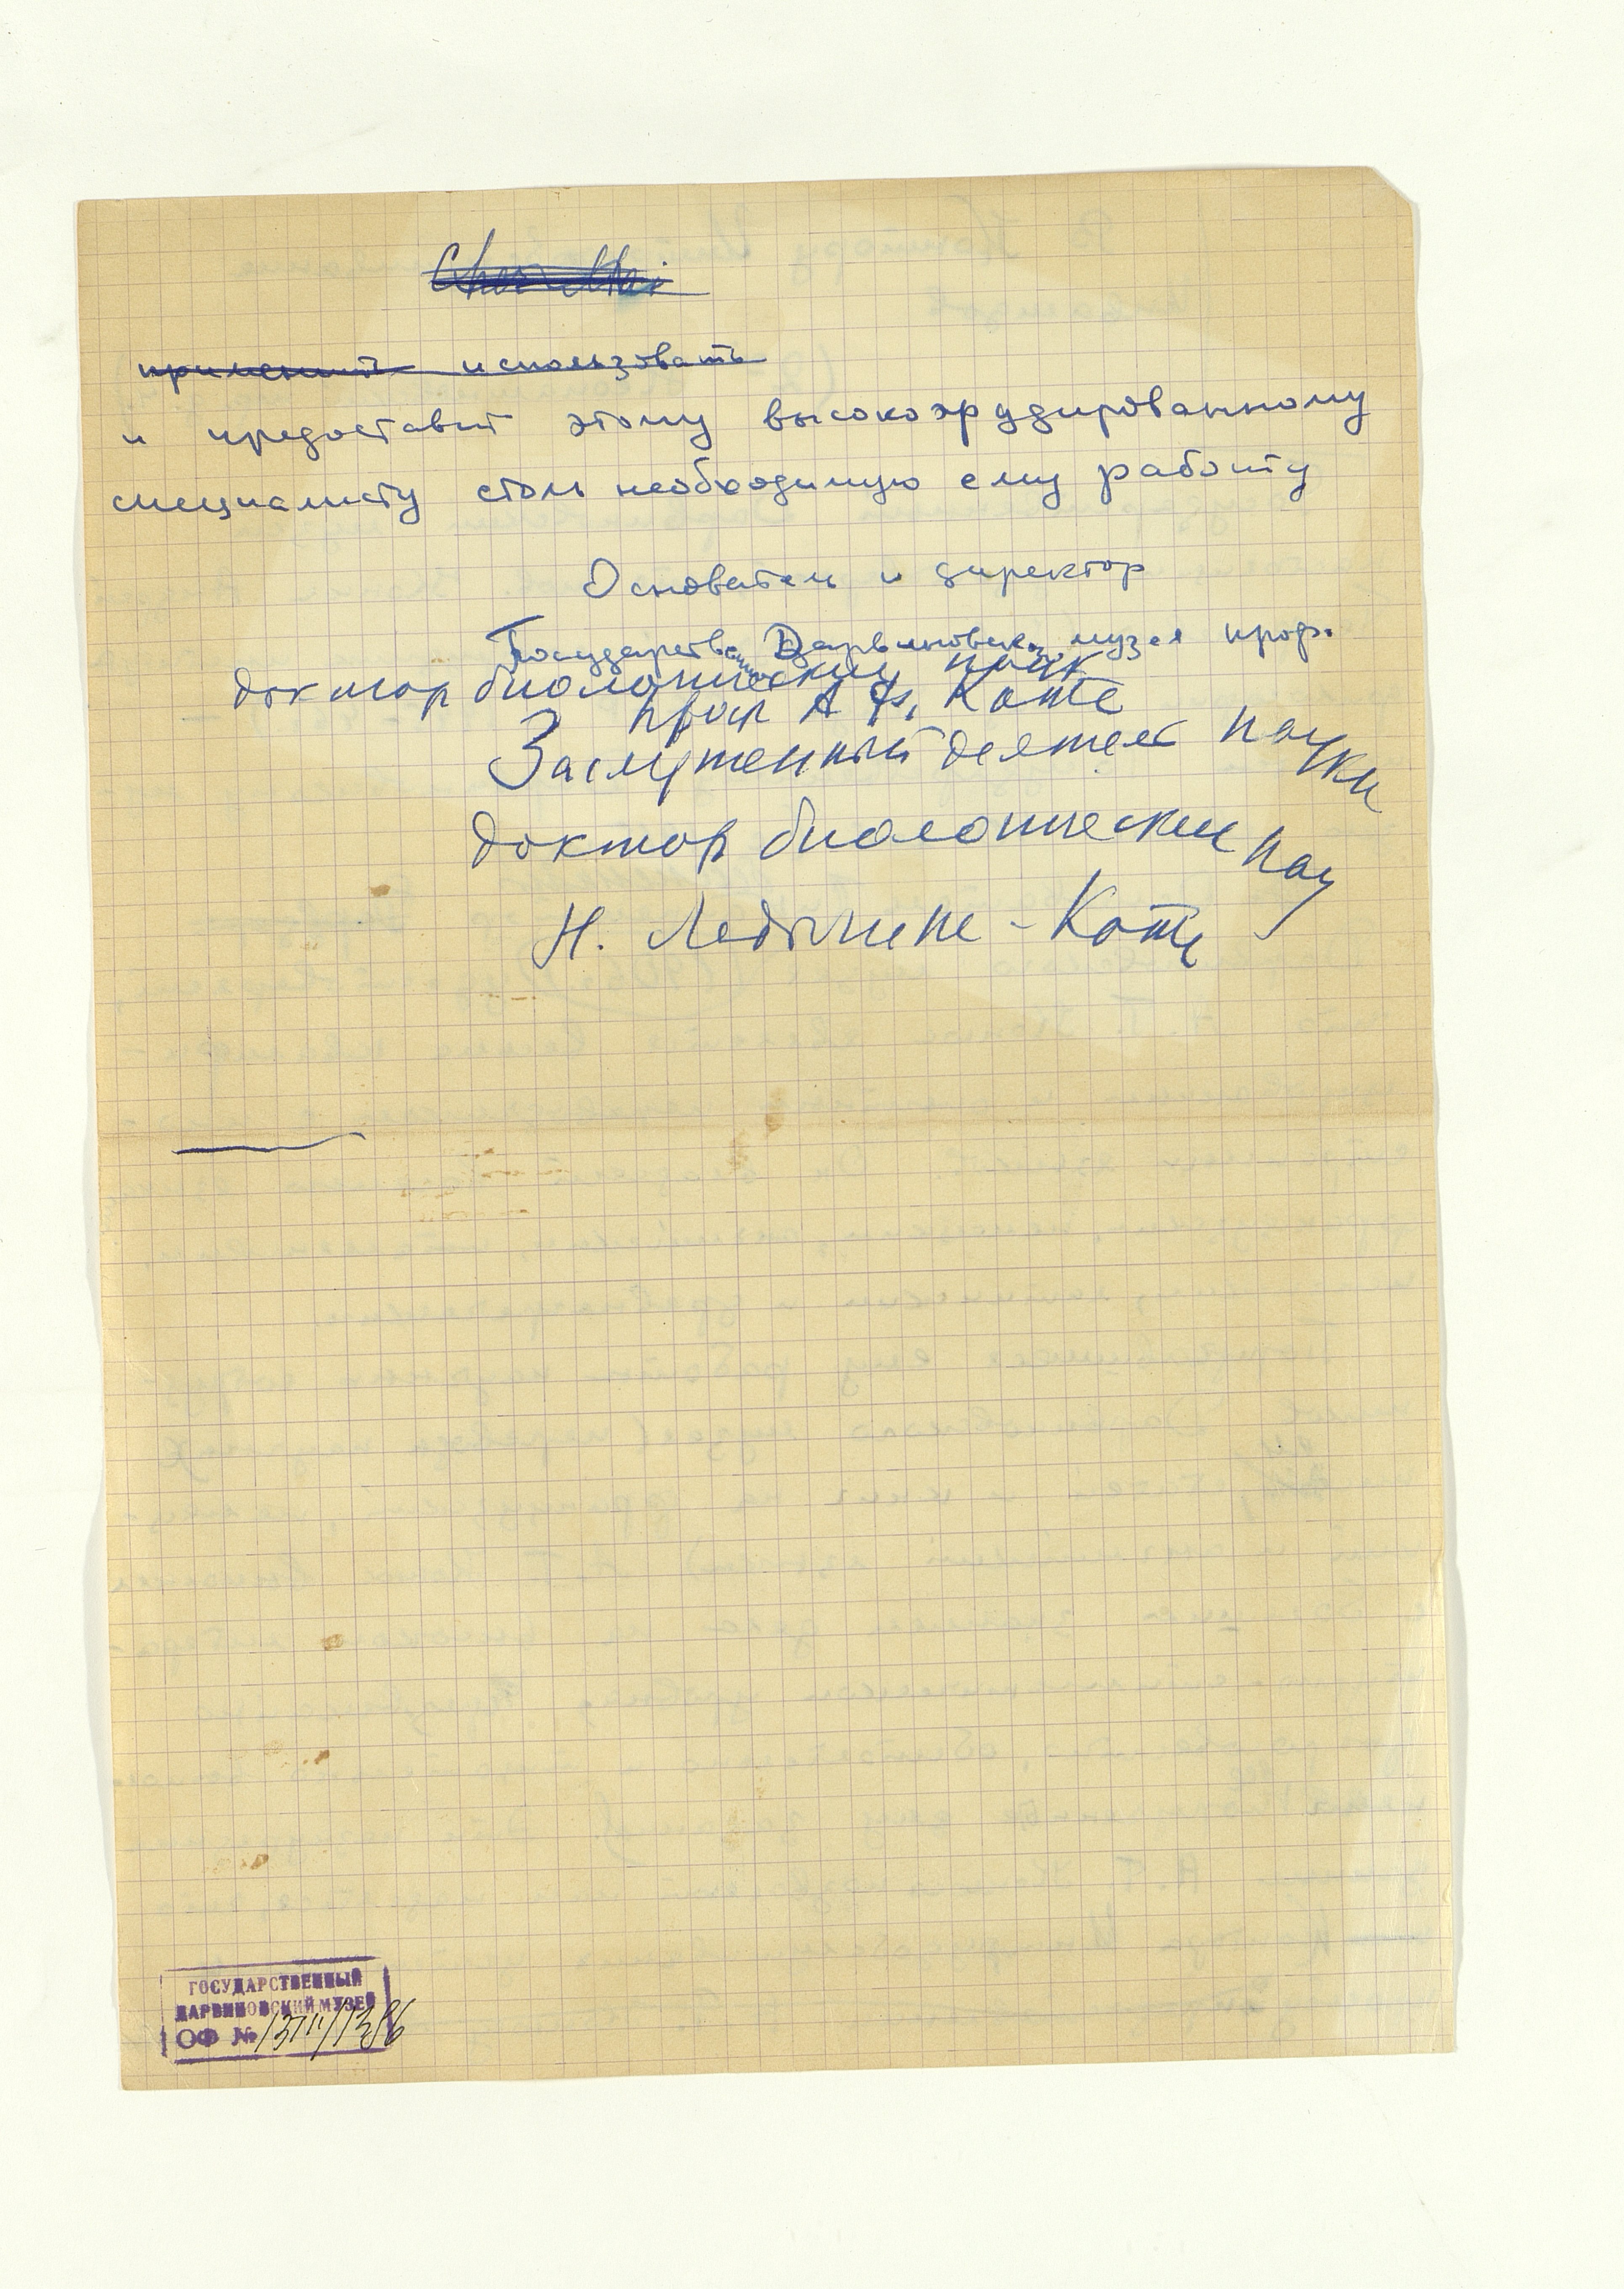 применить использовать
и предоставит этому высокоэрудированному
специалисту столь необходимую ему работу
Основатель и директор
Государствен Дарвиновск музея проф.
доктор биологических наук
проф А Ф. Котс
Заслуженный деятель науки
доктор биологических наук
Н. Ладыгина-Котс
ГОСУДАРСТВЕННЫЙ
ДАРВИНОВСКИЙ МУЗЕЙ
ОФ №